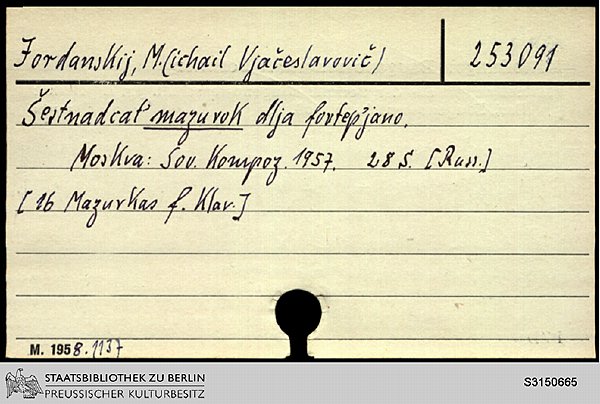 Jordanskij, M.(ichail Vjačeslavovič)
253091
Šestnadcat' mazurok dlja fortepjano.
Moskva: Sov. Kompoz. 1957. 28 S. [Russ.]
[16 Mazurkas f. Klav.]
M. 1958.1137
STAATSBIBLIOTHEK ZU BERLIN
PREUSSISCHER KULTURBESITZ
S3150665